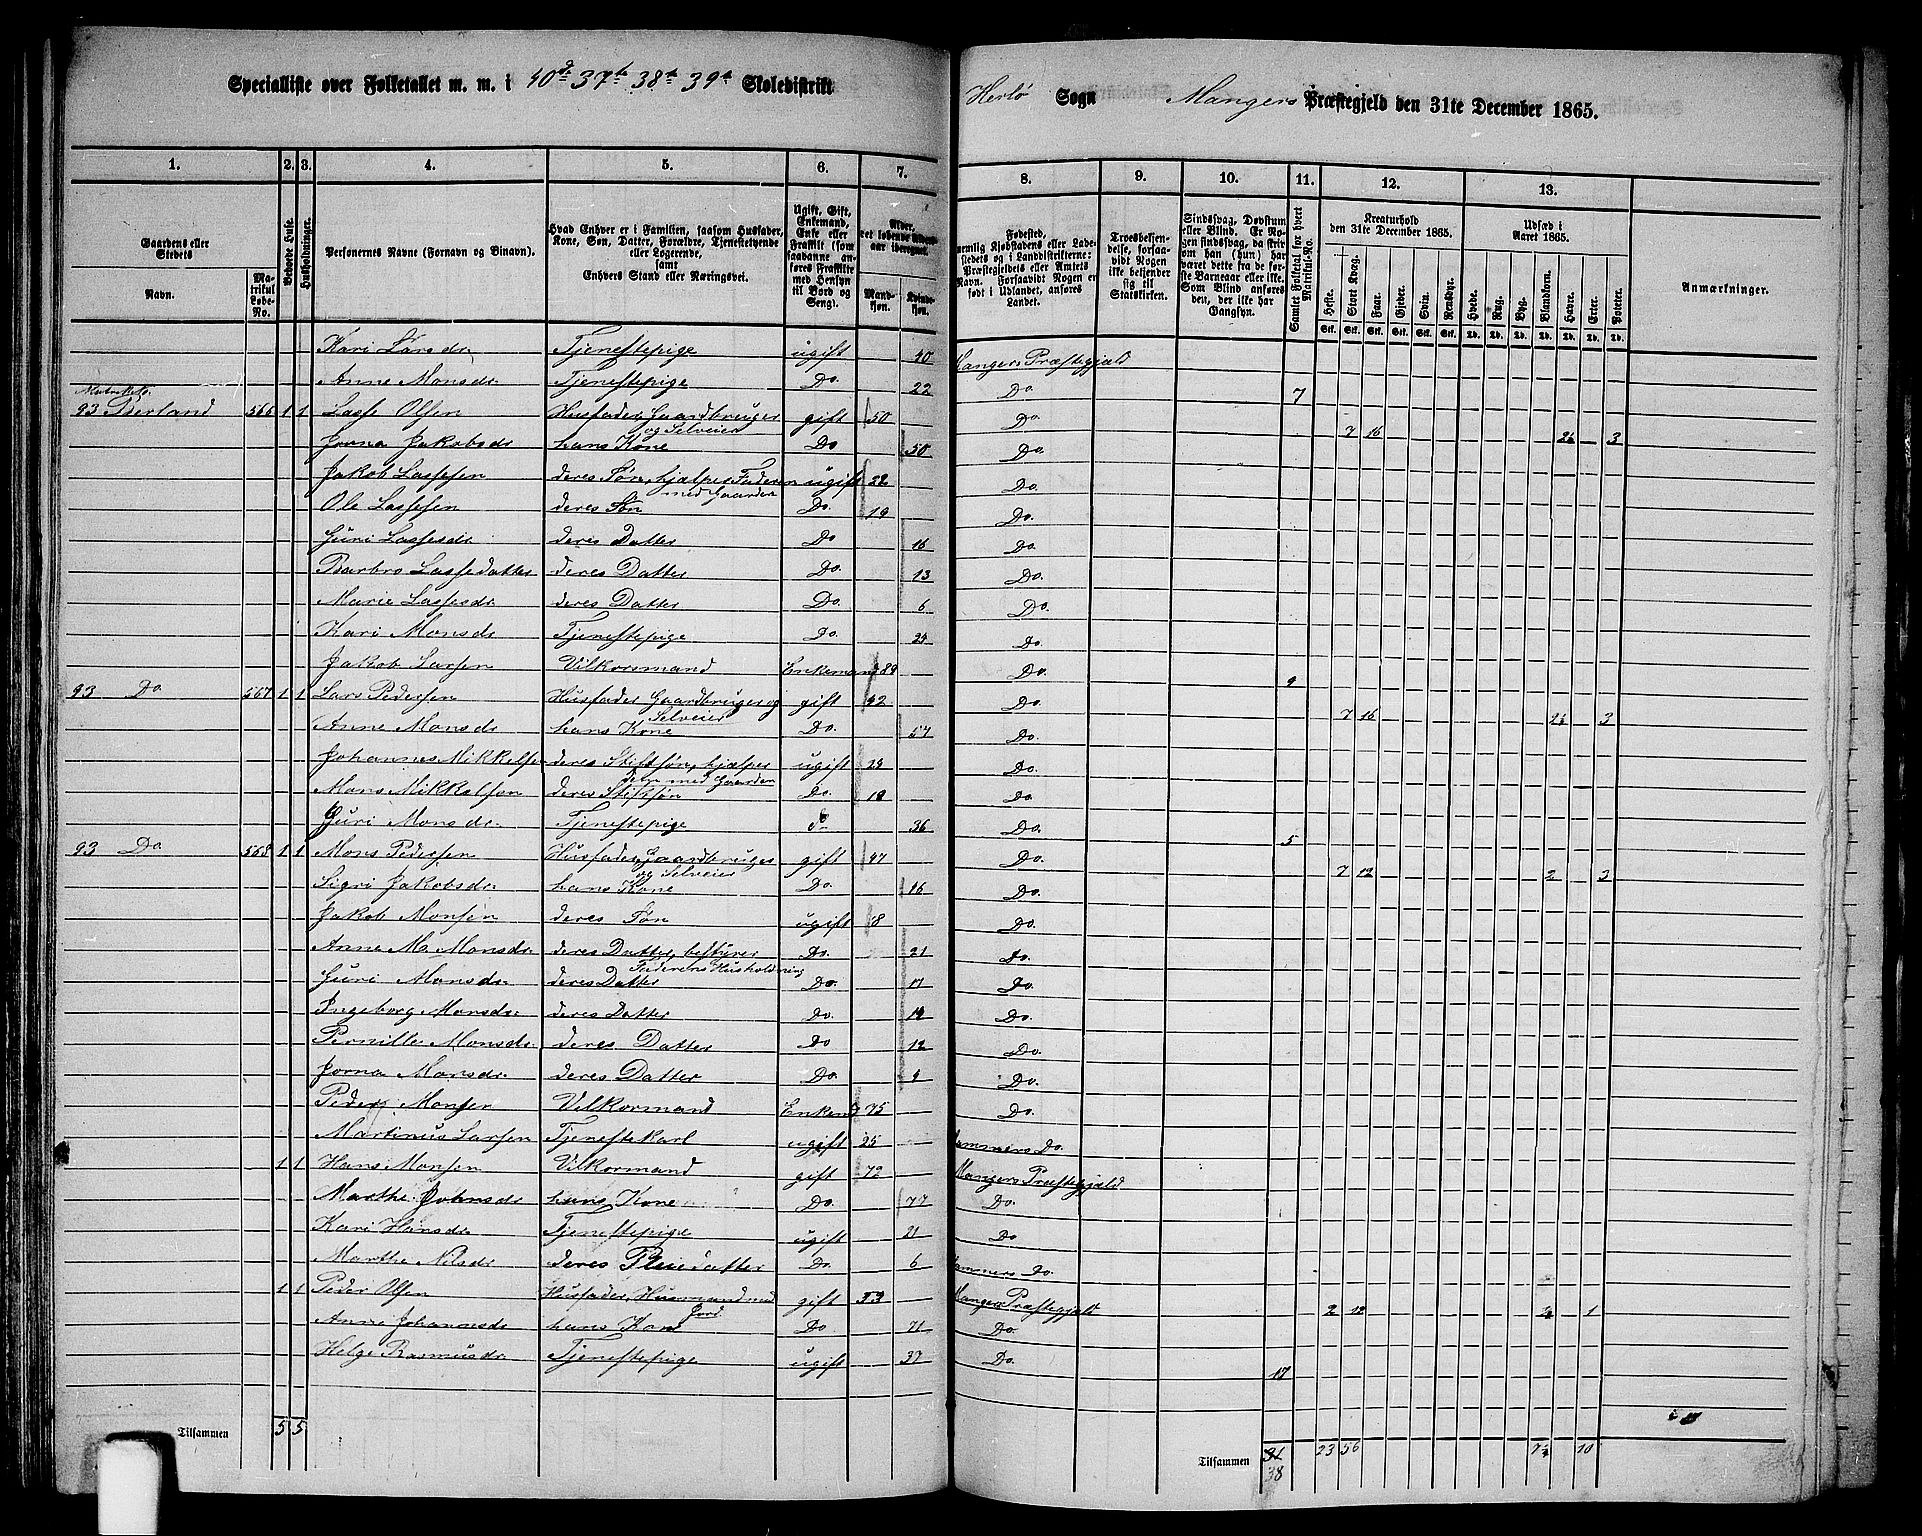 Specialliste over Folketallet m. m. i 40de 37te 38te 39te Skoledistrikt
Herlø Sogn Mangers Præstegjeld den 31te December 1865.
1. 2. 3. 4. 5. 6. 7.
8. 9. 10. 11. 12. 13.
Gaardens eller Stedets
Navn.
Matrikul Løbe-No.
Beboede Huse.
Husholdninger.
Personernes Navne (Fornavn og Binavn).
Hvad Enhver er i Familien, saasom Husfader, Kone, Søn, Datter, Forældre, Tjenestetyende eller Logerende, samt Enhvers Stand eller Næringsvei.
Ugift, Gift, Enkemand, Enke eller Fraskilt (som saadanne anføres Fraskilte med Hensyn til Bord og Seng).
Mandkjøn.
Kvindekjøn.
Troesbekjendelse, forsaavidt Nogen ikke bekjender sig til Statskirken.
Sindssvag, Døvstum eller Blind. Er Nogen sindssvag, da skriv om han (hun) har været dette fra de første Barneaar eller ikke. Som Blind anføres den, der ikke har Gangsyn.
Samlet Folketal for hvert Matrikul-No.
Kreaturhold den 31te December 1865.
Heste. Stort Kvæg. Faar. Gjeder. Svin. Rensdyr.
Udsæd i Aaret 1865.
Hvede. Rug. Byg. Blandkorn. Havre. Erter. Poteter.
Anmærkninger.
Kari Larsdr. Tjenestepige ugift 40 Mangers Præstegjæld
Anne Monsdr. Tjenestepige Do. 22 Do. 7
93 Berland 566 1 1 Lasse Olsen Husfader, Gaardbruger og Selveier gift 50 Do. 7 16 3
Jorna Jakobsdr hans Kone Do 50 Do.
Jakob Lassesen deres Søn, hjælper Faderen med Gaarden ugift 22 Do.
Ole Lassesen deres Søn Do. 19 Do.
Guri Lassesdr. deres Datter Do 16 Do.
Barbro Lassedatter deres Datter Do. 13 Do.
Marie Lassesdr. deres Datter Do. 6 Do.
Kari Monsdr Tjenestepige Do. Do.
Jakob Larsen Vilkorsmand Enkemand Do. 9
93 Do. 567 1 1 Lars Pedersen Husfader Gaardbruger og Selveier gift 42 Do. 7 16 3
Anne Monsdr hans Kone Do. 57 Do.
Johannes Mikkelsen deres Stifsøn, hjælper dem med Gaarden ugift Do.
Mons Mikkelsen deres Stifsøn Do. 18 Do.
Guri Monsdr. Tjenestepige do 36 Do. 5
93 Do 568 1 1 Mons Pedersen Husfader, Gaardbruger og Selveier gift 47 Do. 7 12 2 3
Sigri Jakobsdr. hans Kone Do. Do.
Jakob Monsen deres Søn ugift 8 Do.
Anne M. Monsdr. deres Datter, bestyrer Faderens Husholdning Do. 21 Do.
Guri Monsdr. deres Datter Do. 17 Do.
Ingeborg Monsdr. deres Datter Do. Do.
Pernille Monsdr. deres Datter Do 12 Do.
Jorna Monsdr. deres Datter Do. Do.
Peder Monsen Vilkorsmand Enkemd 75 Do.
Martinus Larsen Tjenestekarl ugift 25 Hammers Do.
1 1 Hans Monsen Vilkorsmand gift 72 Mangers Præstegjæld
Marthe Johnsdr. hans Kone Do. 77 Do.
Kari Hansdr. Tjenestepige ugift 21 Do
Marthe Nilsdr deres Pleiedatter Do. 6 Hammers Do.
1 1 Peder Olsen Husfader, Husmand med Jord gift 53 Mangers Præstegjæld 2 12 1
Anne Johannesdr hans Kone Do 71 Do.
Helge Rasmusdr. Tjenestepige ugift 37 Do. 17
Tilsammen 5 5
Tilsammen 31 23 56 7½ 10
38